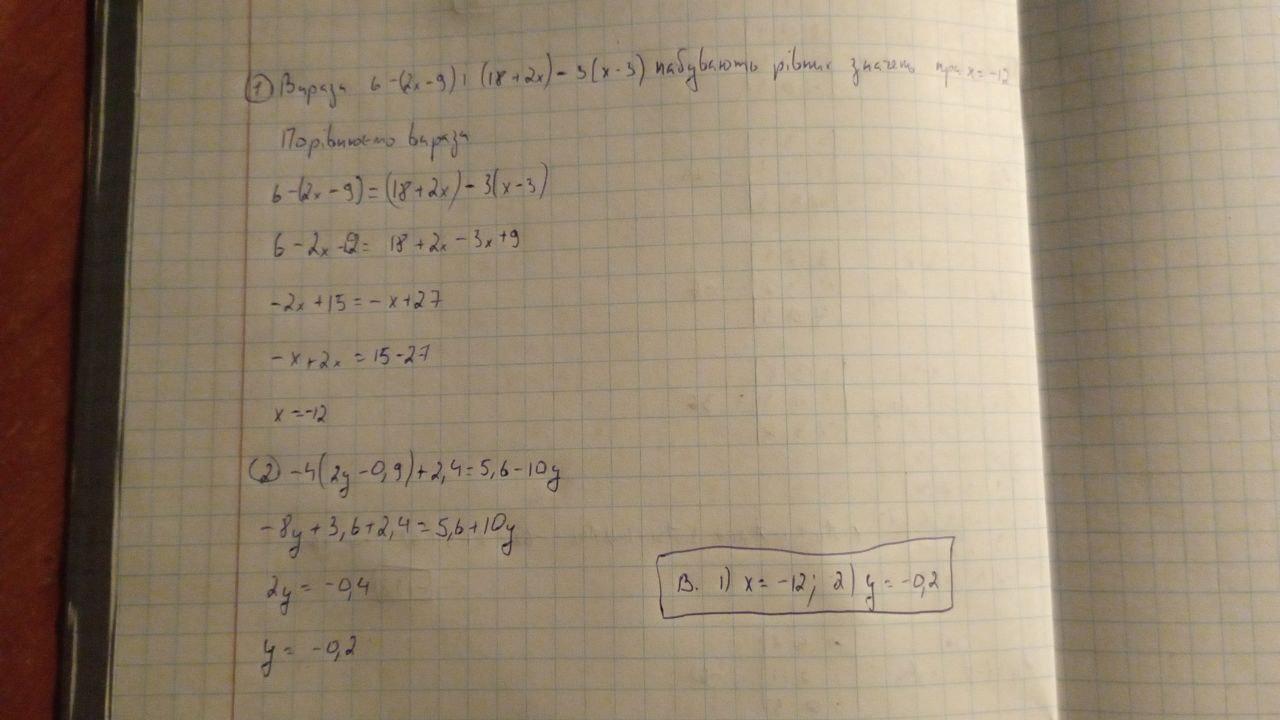 ① Вирази 6-(2x-9) і (18+2x)-3(x-3) набувають рівних значень при x=-12
Порівнюємо вирази
6-(2x-9)=(18+2x)-3(x-3)
6-2x = 18+2x-3x+9
-2x+15=-x+27
-x+2x=15-27
x=-12
② -4(2y-0,9)+2,4=5,6-10y
-8y+3,6+2,4=5,6+10y
2y= -0,4
y= -0,2
В. 1) x= -12; 2) y= -0,2